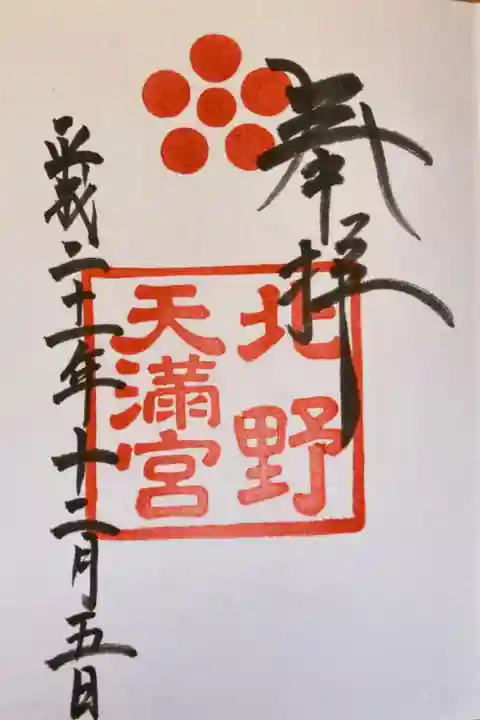 奉拝
北野
天満宮
平成二十一年十二月五日